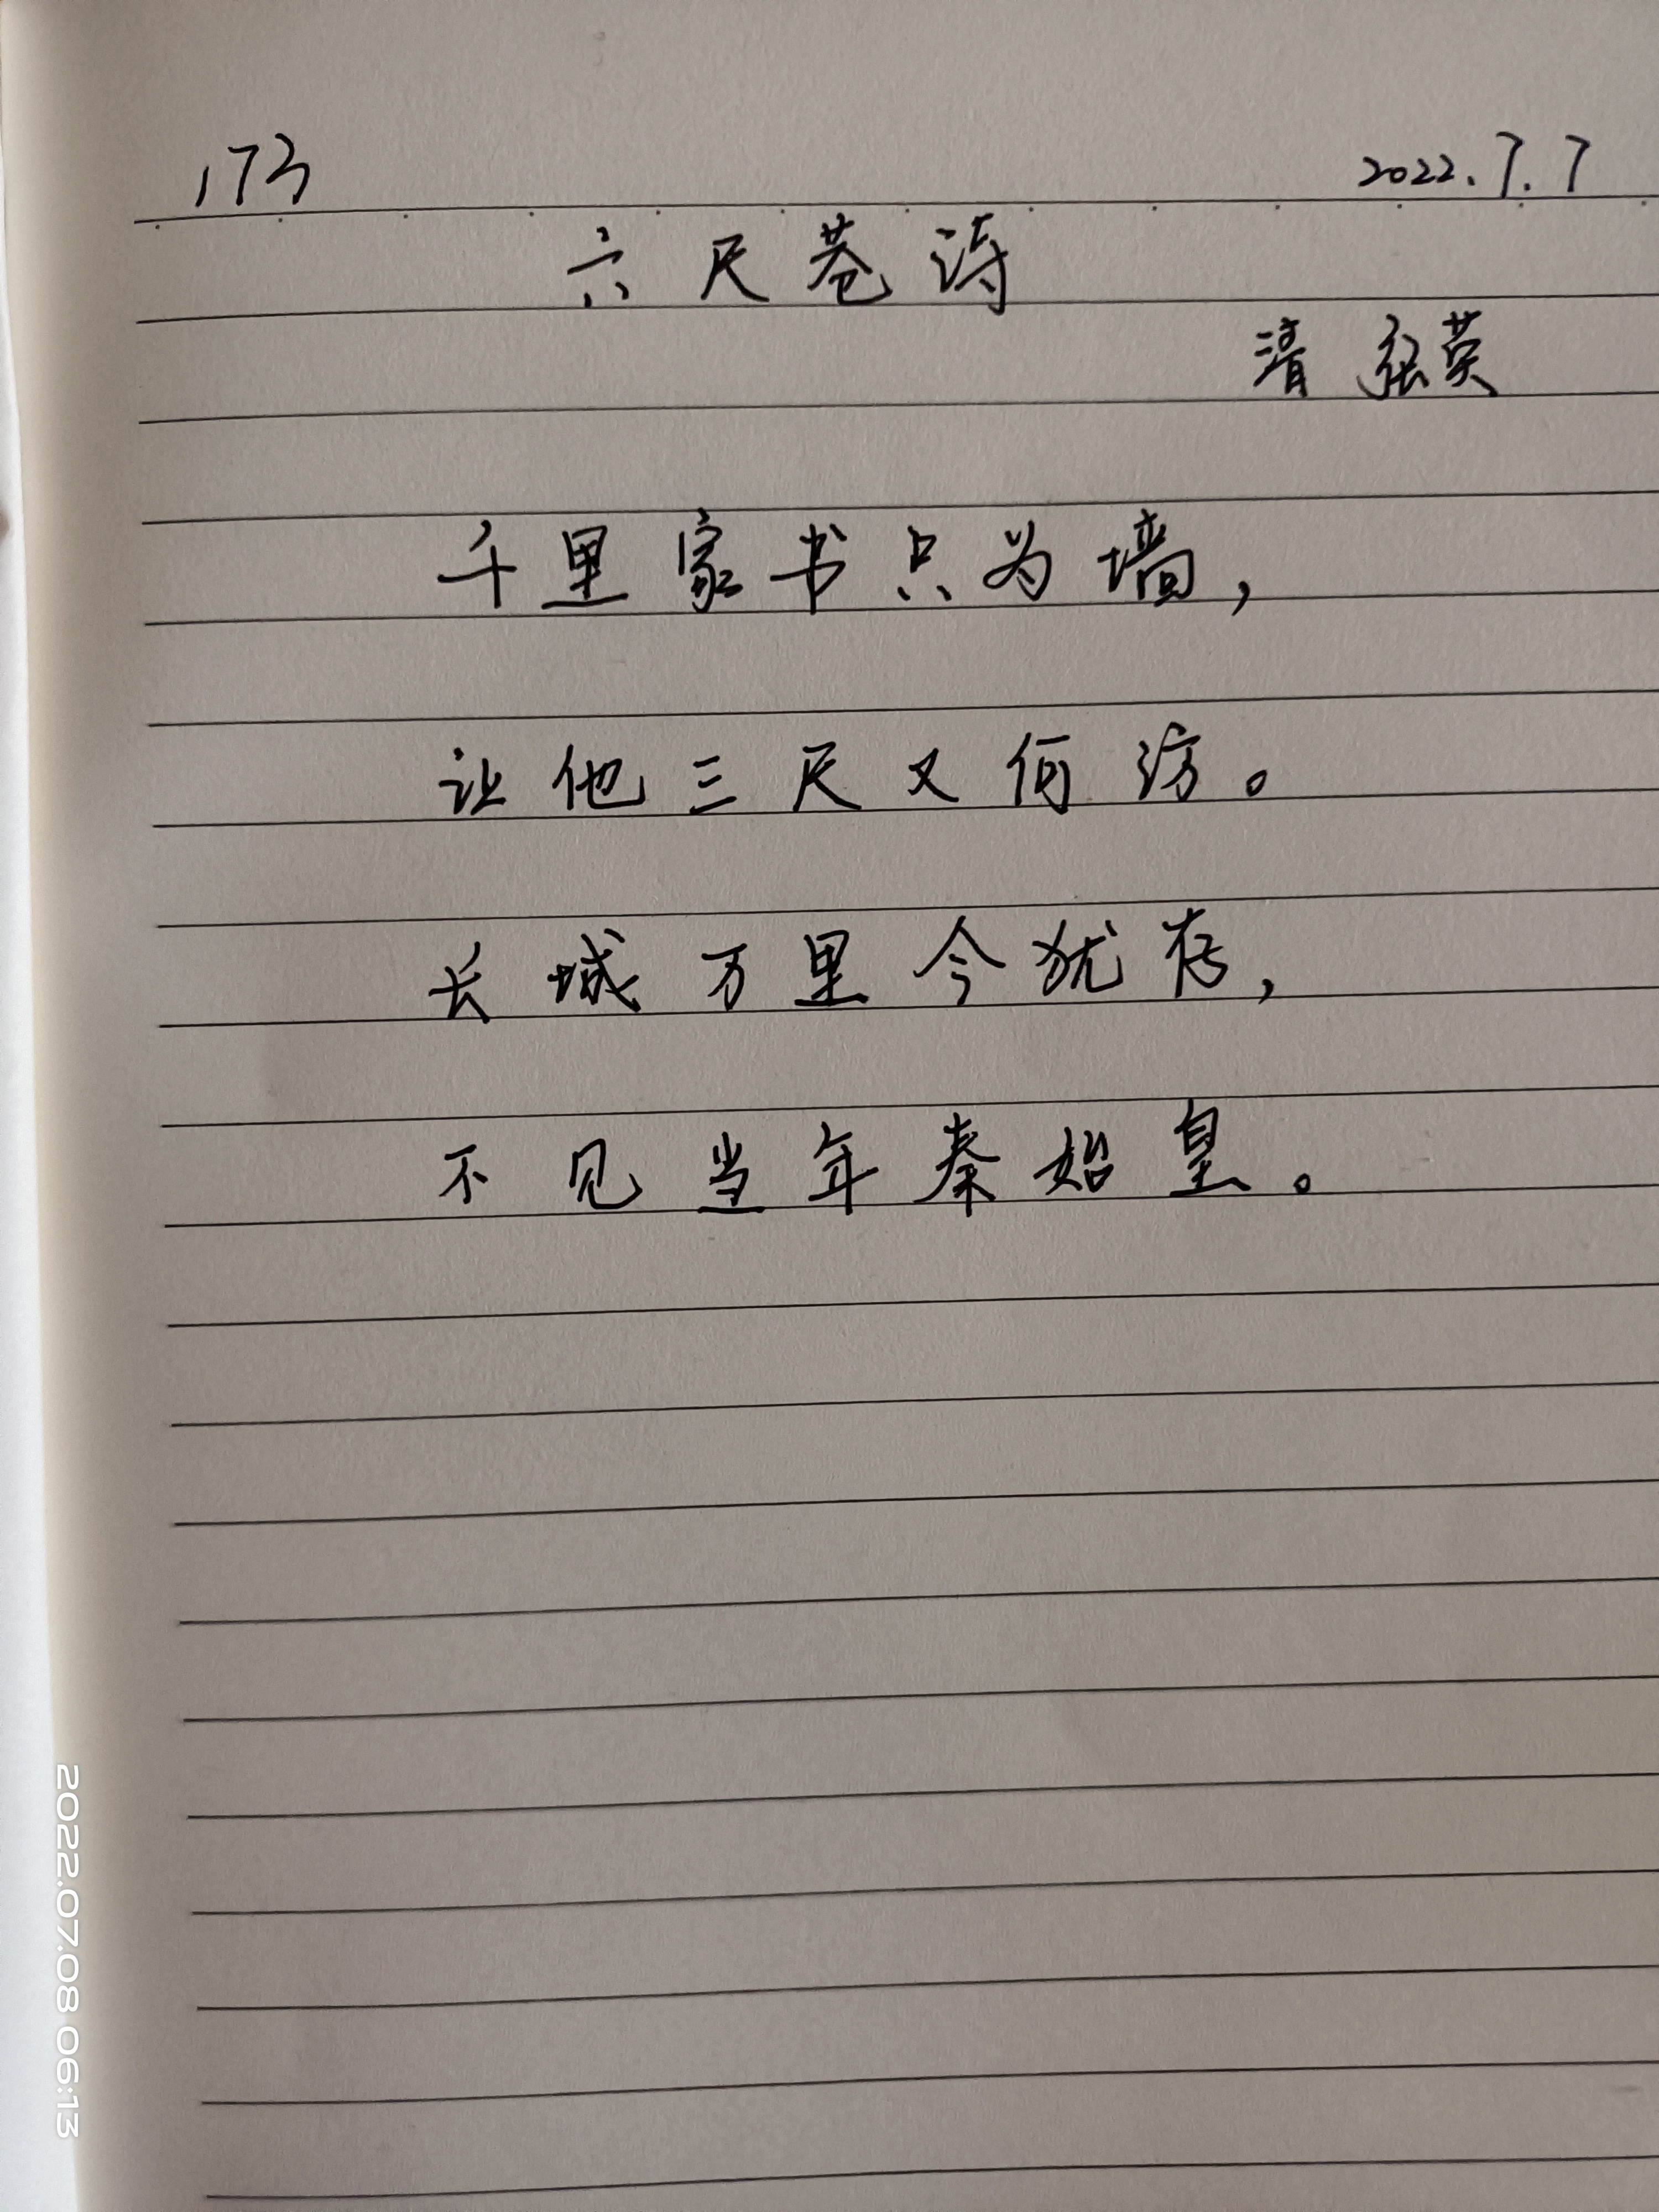 173 2022.7.7
六尺巷诗
清 张英
千里家书只为墙，
让他三尺又何访。
长城万里今犹存，
不见当年秦始皇。
2022.07.08 06:13